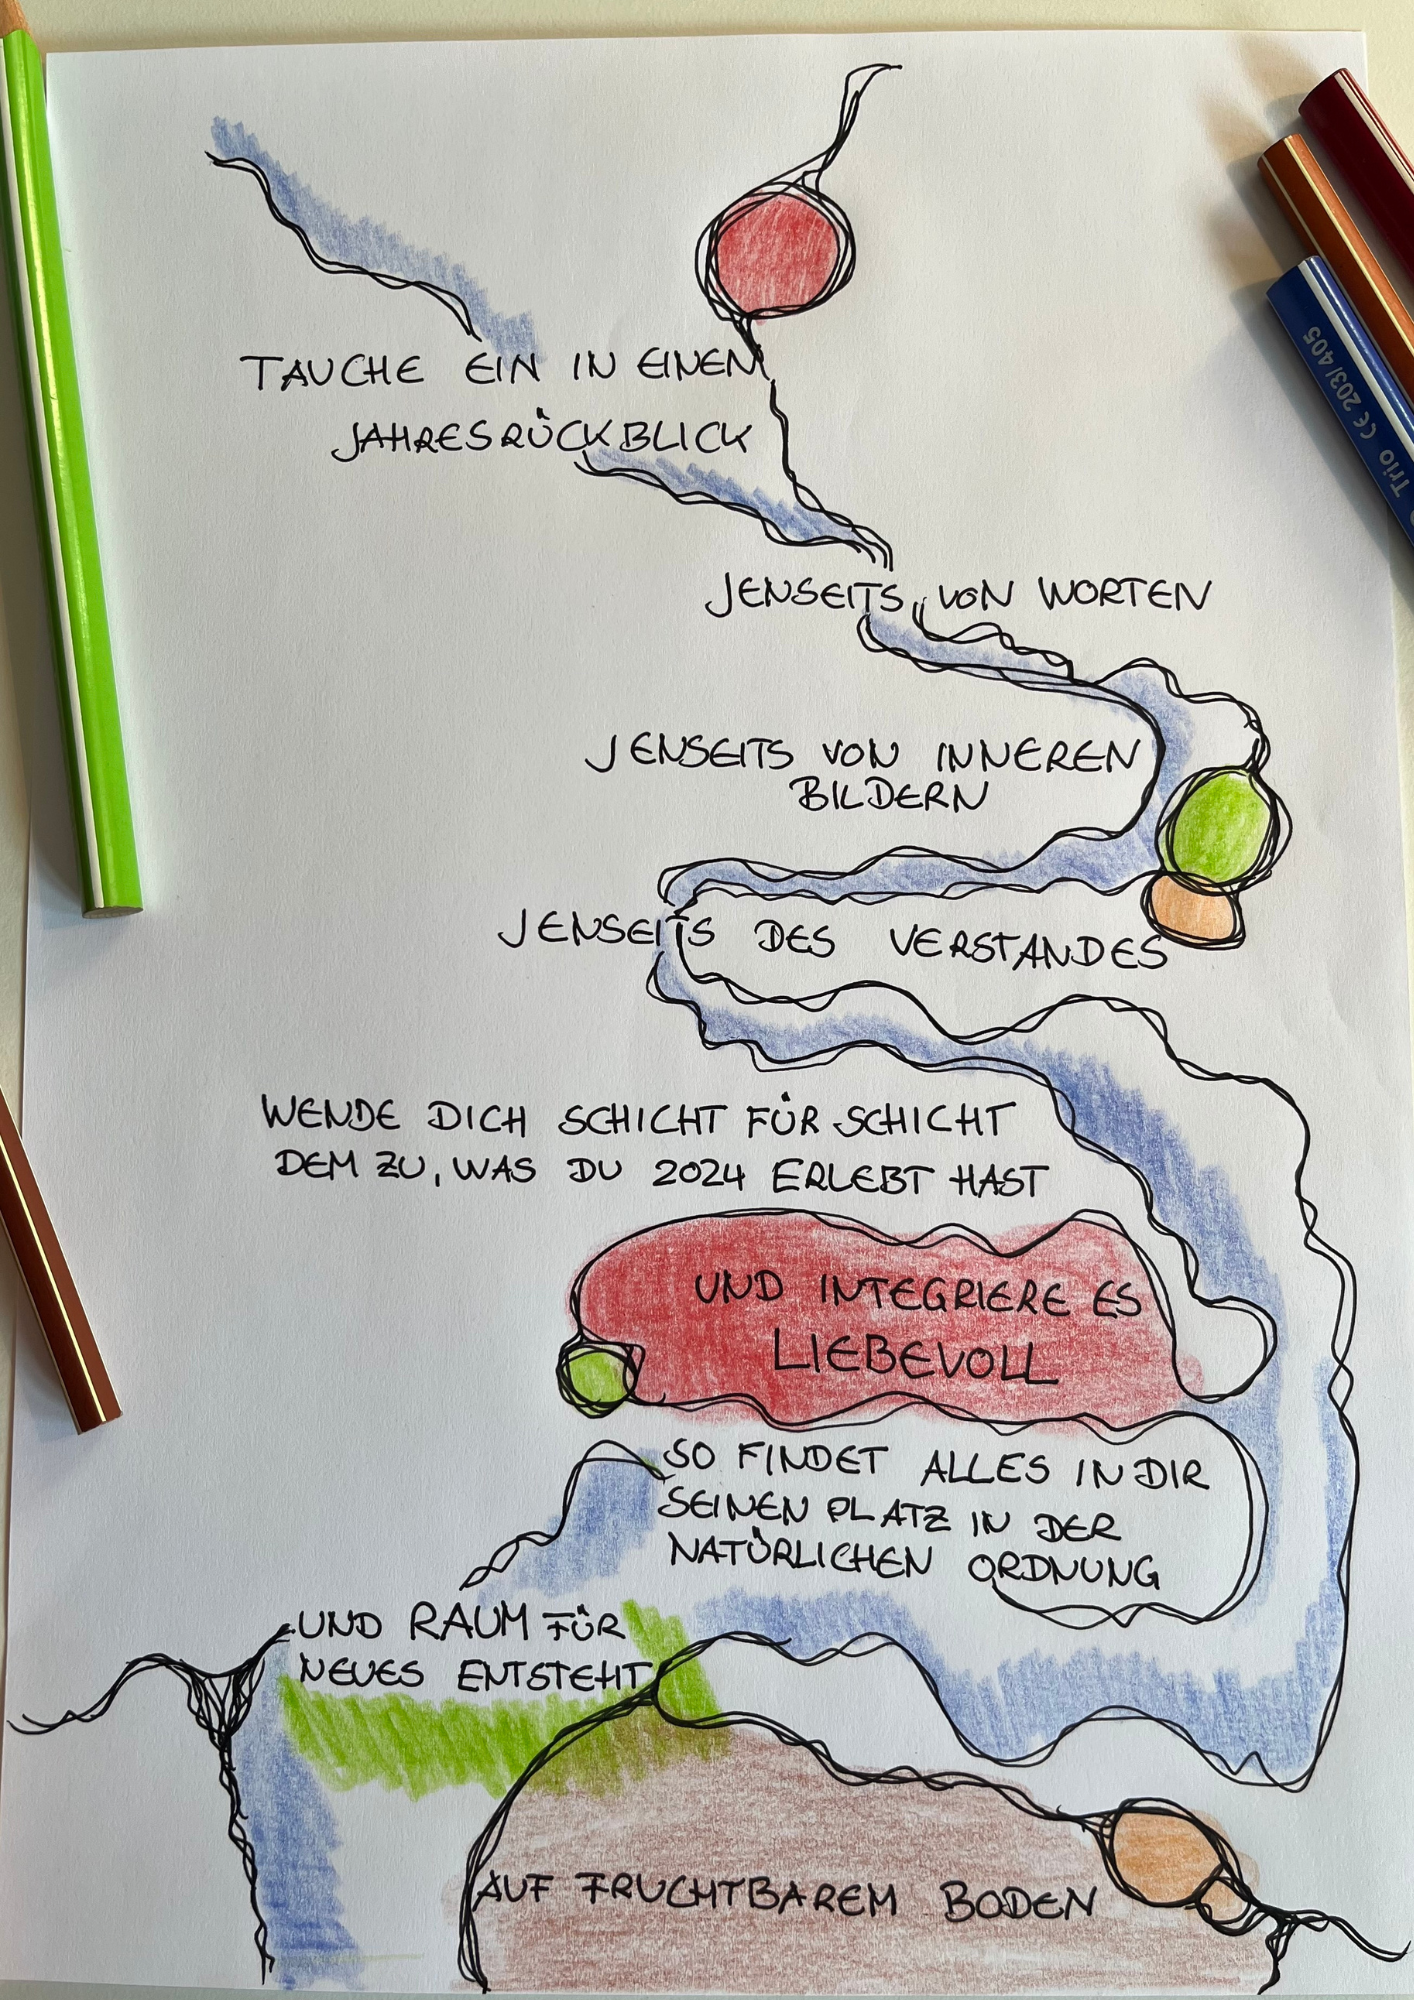 TAUCHE EIN IN EINEN
JAHRESRÜCKBLICK
JENSEITS VON WORTEN
JENSEITS VON INNEREN
BILDERN
JENSEITS DES VERSTANDES
WENDE DICH SCHICHT FÜR SCHICHT
DEM ZU, WAS DU 2024 ERLEBT HAST
UND INTEGRIERE ES
LIEBEVOLL
SO FINDET ALLES IN DIR
SEINEN PLATZ IN DER
NATÜRLICHEN ORDNUNG
UND RAUM FÜR
NEUES ENTSTEHT
AUF FRUCHTBAREM BODEN
Trio CE 203/405